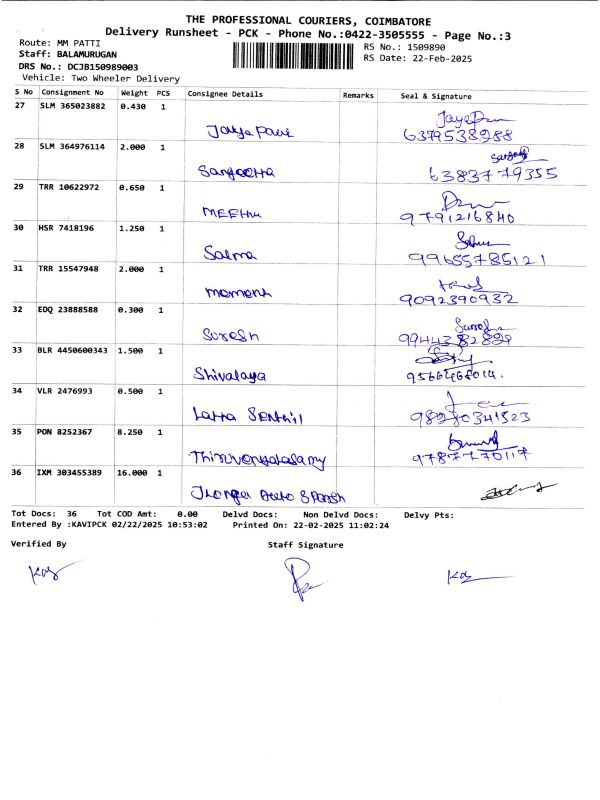 THE PROFESSIONAL COURIERS, COIMBATORE
Delivery Runsheet - PCK - Phone No.:0422-3505555 - Page No.:3
Route: MM PATTI
RS No.: 1509890
Staff: BALAMURUGAN
RS Date: 22-Feb-2025
DRS No.: DCJB150989003
Vehicle: Two Wheeler Delivery
S No Consignment No Weight PCS Consignee Details Remarks Seal & Signature
27 SLM 365023882 0.430 1
Jaya Paul 6379538988
28 SLM 364976114 2.000 1
Sangeetha 6383779355
29 TRR 10622972 0.650 1
MEEthu 9791216840
30 HSR 7418196 1.250 1
Salma 99655785121
31 TRR 15547948 2.000 1
9092390932
32 EDQ 23888588 0.300 1
Suresh
33 BLR 4450600343 1.500 1
Shivalaya
34 VLR 2476993 0.500 1
Latha Senthil
35 PON 8252367 8.250 1
36 IXM 303455389 16.000 1
Auto
Tot Docs: 36 Tot COD Amt: 0.00 Delvd Docs: Non Delvd Docs: Delvy Pts:
Entered By :KAVIPCK 02/22/2025 10:53:02 Printed On: 22-02-2025 11:02:24
Verified By Staff Signature